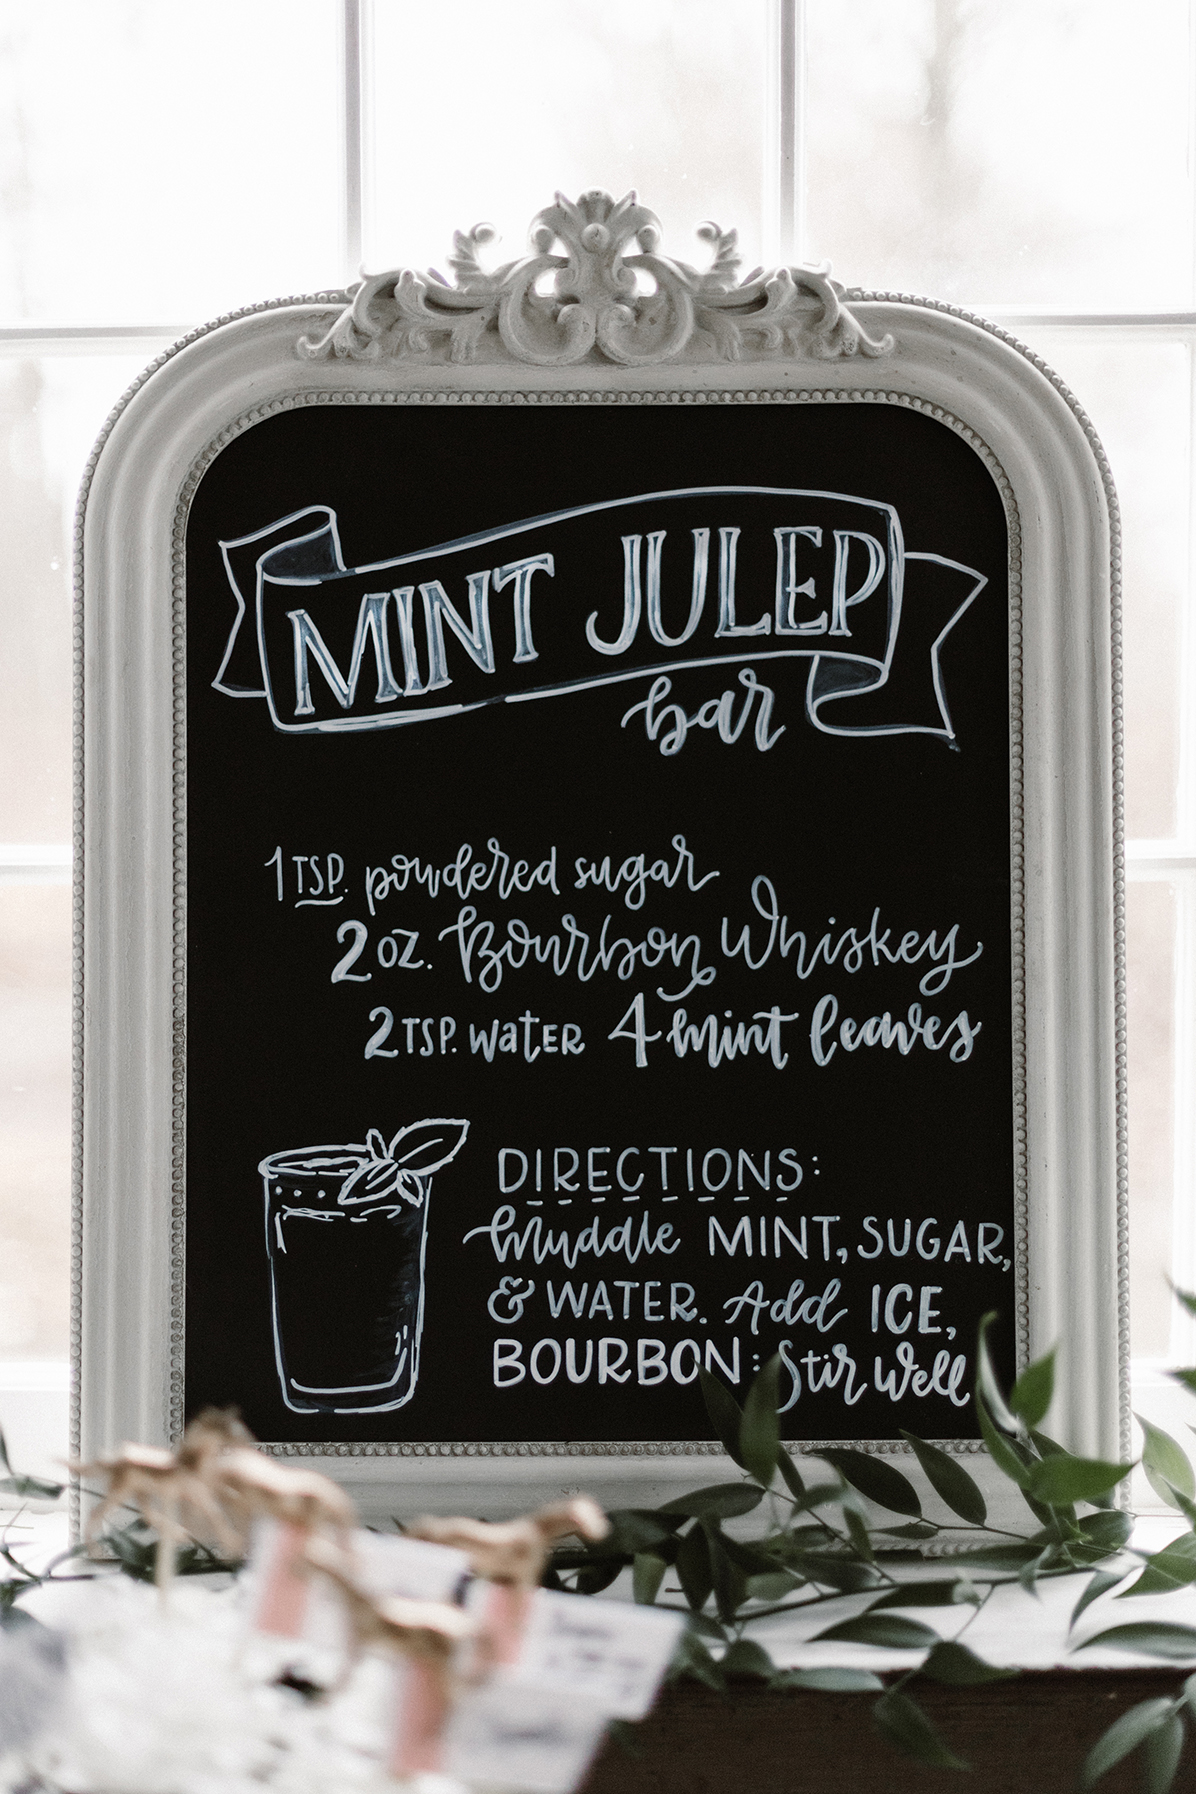 MINT JULEP
bar
1 TSP. powdered sugar
2 oz. Bourbon Whiskey
2 TSP. water 4 mint leaves
DIRECTIONS:
Muddle MINT, SUGAR,
& WATER. Add ICE,
BOURBON: Stir Well